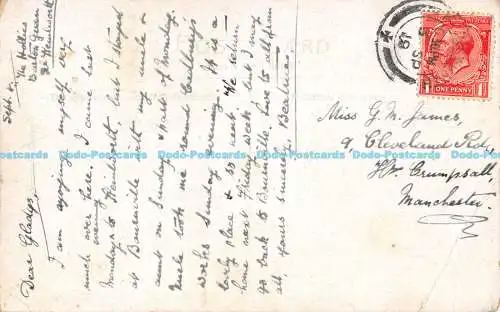 Sept. 5.
The Hollies
Green
Nr Kenilworth
Dear Gladys
I am enjoying myself very
much over here. I came last
Monday to Kenilworth, but I stayed
at Bournville with my uncle &
aunt on Sunday & part of Monday.
Uncle took me round Cadburys
works Sunday evening. It is a
lovely place & so neat. We return
home next Friday week but I may
go back to Bournville. Love to all from
all, yours sincerely, Beatrice
Miss G. M. James,
9, Cleveland Rd,
Hr. Crumpsall,
Manchester.
ONE PENNY
1
1
Dodo-Postcards Dodo-Postcards Dodo-Postcards Dodo-Postcards Dodo-Postcards